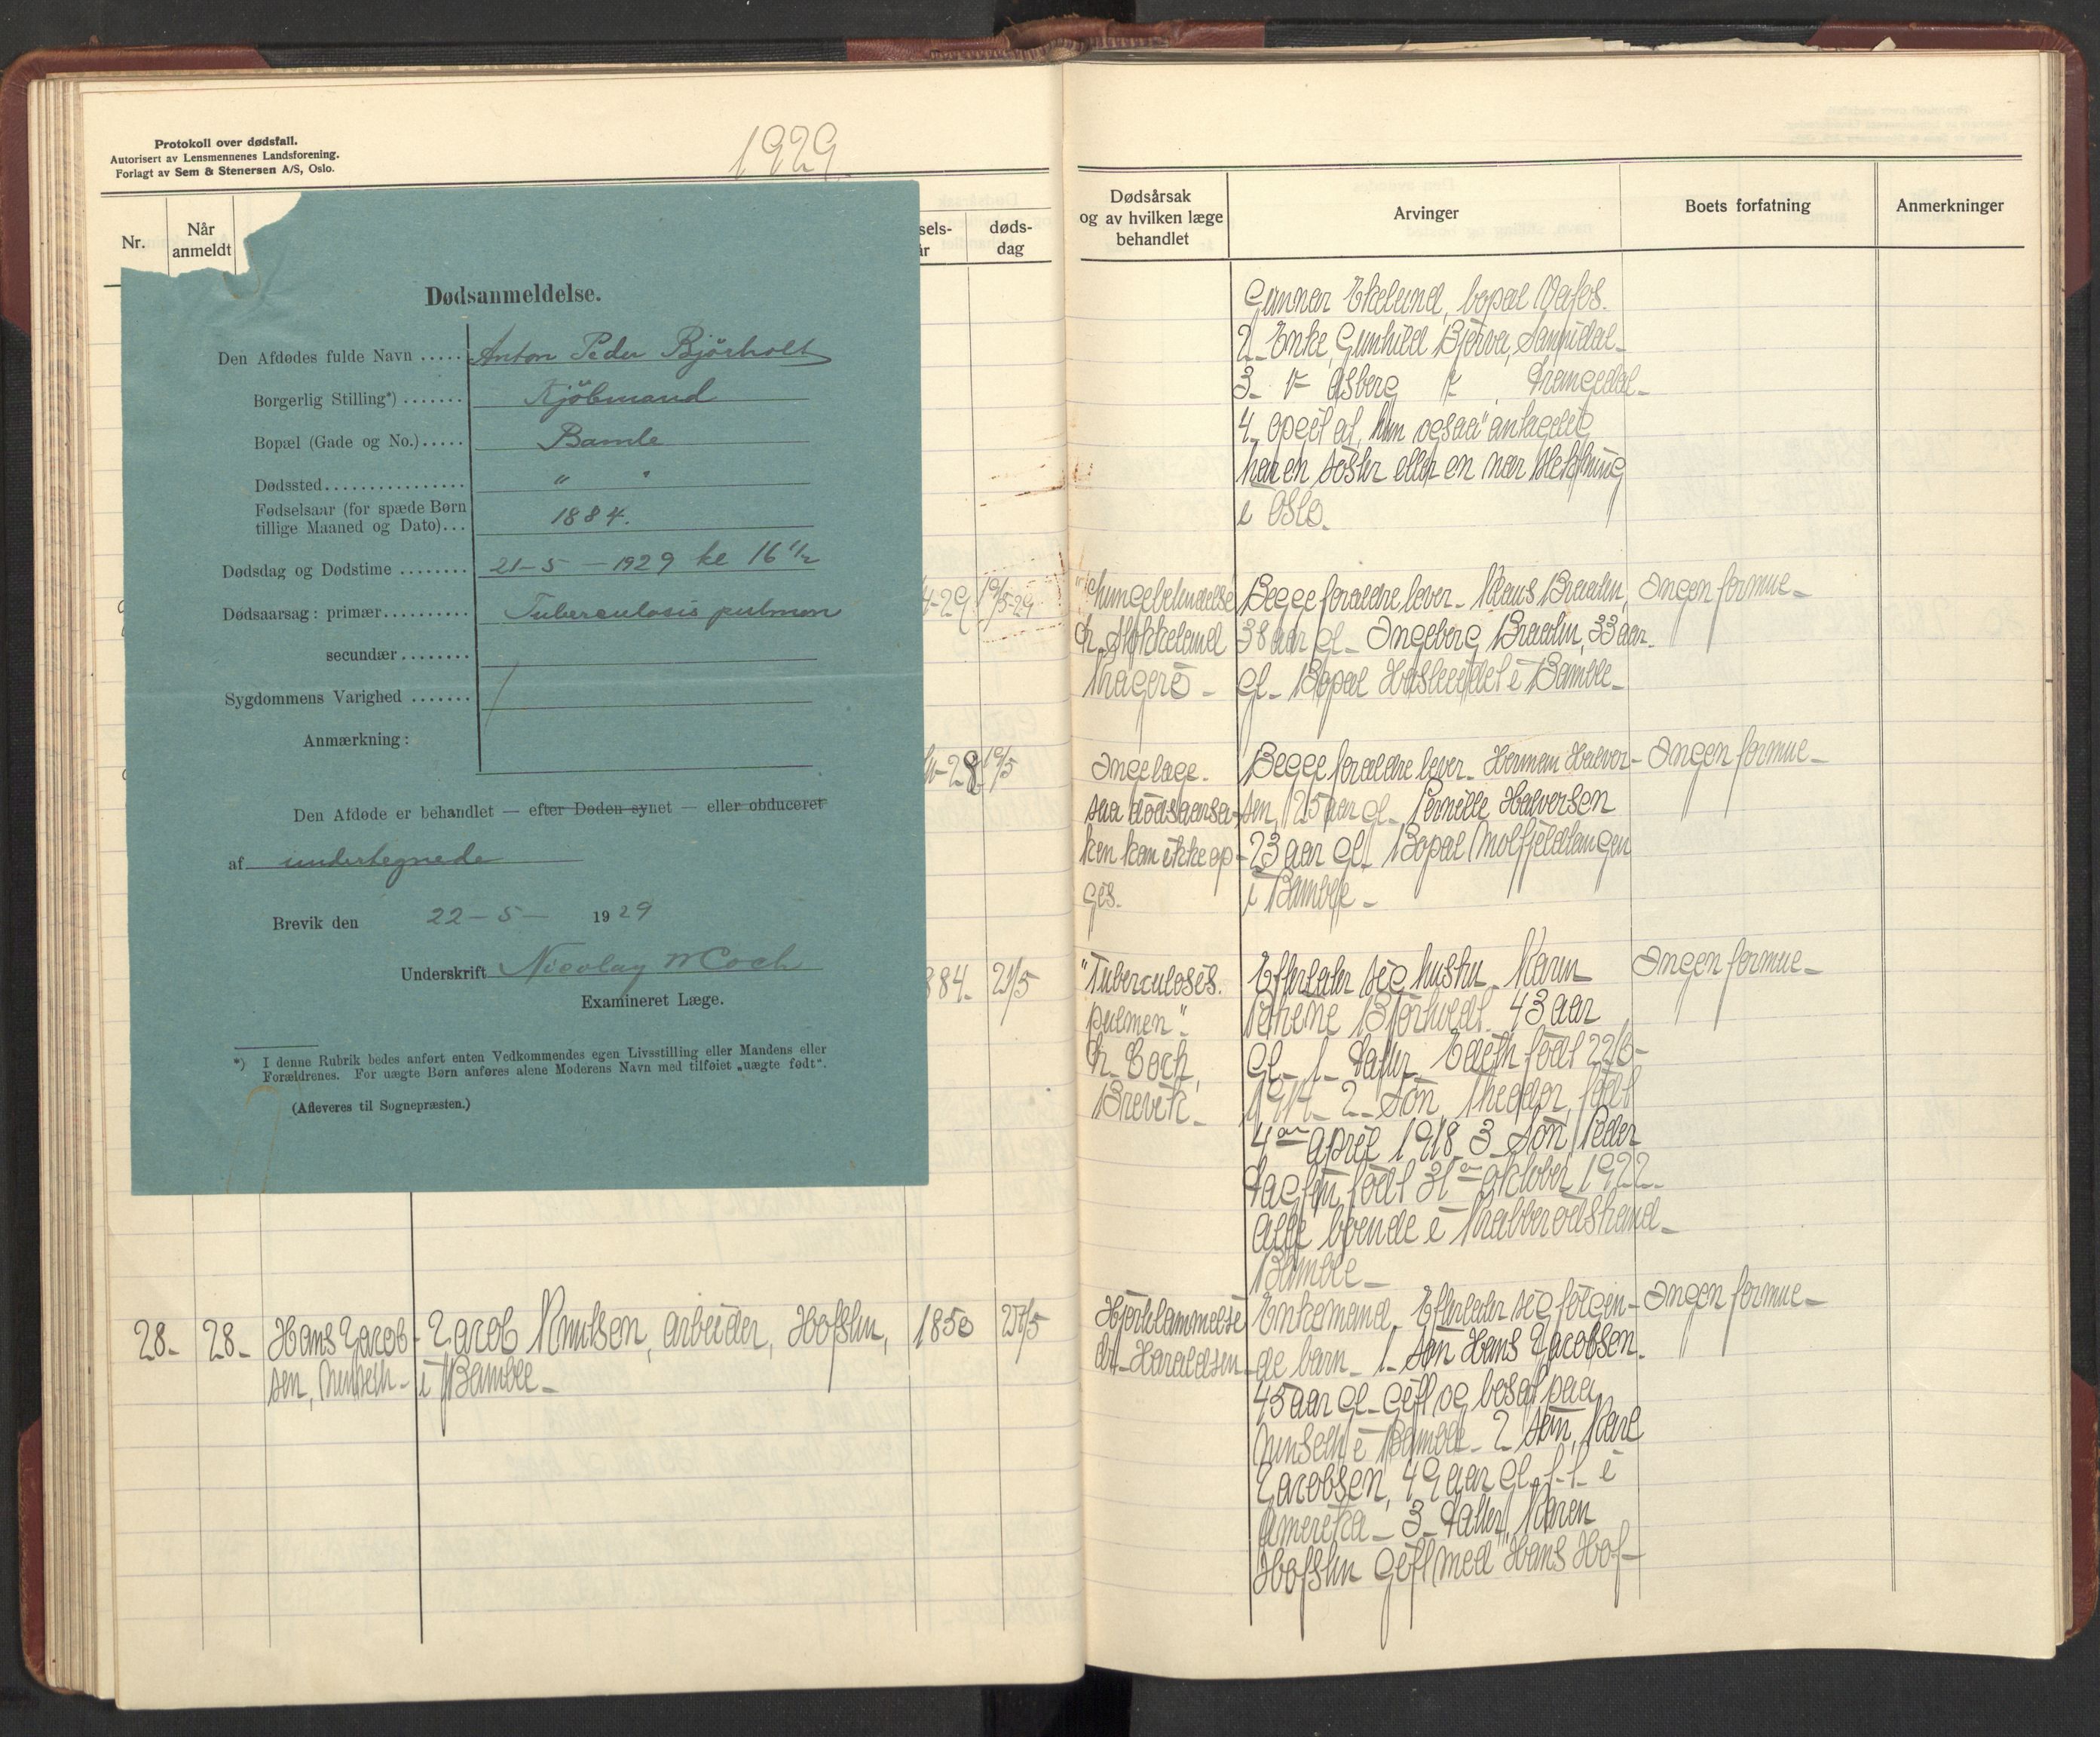 Protokoll over dødsfall.
Autorisert av Lensmennenes Landsforening.
Forlagt av Sem & Stenersen A/S, Oslo.
1929
Nr.
Når
anmeldt
sels-
år
døds-
dag
Dødsanmeldelse.
Den Afdødes fulde Navn ..... Anton Peder Bjørholt
Borgerlig Stilling*) ....... Kjöbmand
Bopæl (Gade og No.)..... Bamle
Dødssted................ " "
Fødselsaar (for spæde Børn
tillige Maaned og Dato)... 1884.
Dødsdag og Dødstime ........ 21-5-1929 kl 16 1/2
Dødsaarsag: primær.......... Tuberculosis pulmon
secundær ........
Sygdommens Varighed .......
Anmærkning:
Den Afdøde er behandlet — efter Døden synet — eller obduceret
af undertegnede
Brevik den 22-5- 1929
Underskrift Nicolay Coch
Examineret Læge.
*) I denne Rubrik bedes anført enten Vedkommendes egen Livsstilling eller Mandens eller
Forældrenes. For uægte Børn anføres alene Moderens Navn med tilføiet „uægte født“.
(Afleveres til Sognepræsten.)
4-29 19/5-29
-28 19/5
884. 21/5
28. 28. Hans Jacob- Jacob Knutsen, arbeider, Hofslin, 1850 27/5
sen, i Bamble
Dødsårsak
og av hvilken læge
behandlet
Arvinger
Boets forfatning
Anmerkninger
Gunnar Ekelund, bopæl Vafos.
2. Enke, Gunhild Bjerva, Sannidal
3. Asberg Drangedal
4. opgit at hun ogsaa antagelig
har en søster eller en nær slektning
i Oslo.
"Lungebetændelse Begge forældre lever. Klaus Braaten, Ingen formue
dr. Stokkeland 38 aar gl. Ingeborg Braaten, 33 aar
Kragerø gl. Bopæl i Bamble
Ingen læge. Begge forældre lever. Herman Halvor- Ingen formue
saa dødsaarsa- sen, 25 aar gl. Pernille Halversen
ken kan ikke op- 23 aar gl. Bopæl Molfjeldtangen
ges. i Bamble
"Tuberculosis. Efterlater sig hustru Karen Ingen formue
pulmon". 43 aar
dr. Coch, gl. 1. Datter Edith født 22/3-
Brevik 2. Søn født
4de april 1918 3. Søn Peder
født 31te oktober 1922
alle boende i Krabberødstrand
Bamble
Hjertelammelse Enkemand. Efterlater sig følgen- Ingen formue
dr. Haraldsen de barn. 1. Søn Hans Jacobsen
45 aar gl. gift og bosat paa
i Bamble. 2 søn, Karl
Jacobsen, 49 aar gl. f.t. i
Amerika. 3. Datter, Karen
Hofslin gift med Hans Hof-